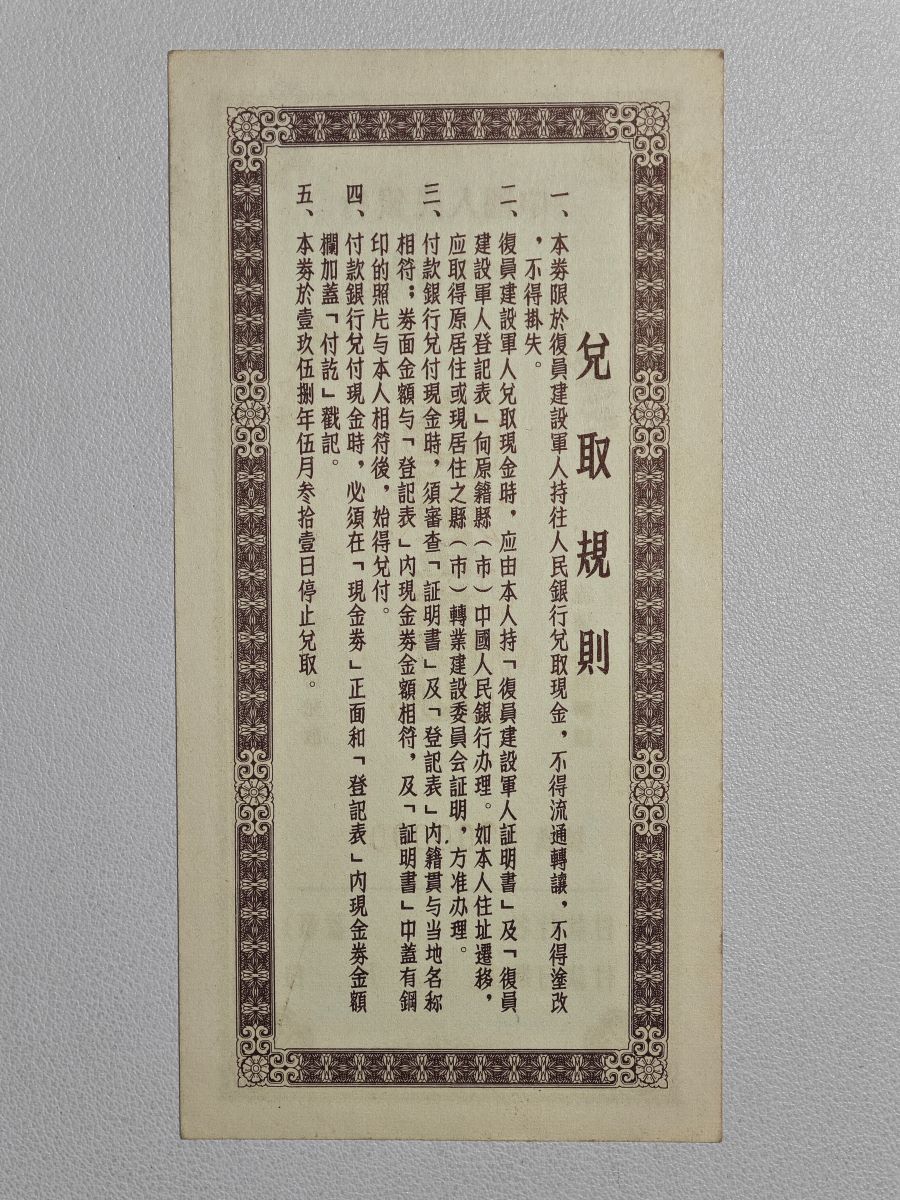 兌取規則
一、本券限於復員建設軍人持往人民銀行兌取現金，不得流通轉讓，不得塗改
，不得掛失。
二、復員建設軍人兌取現金時，应由本人持「復員建設軍人証明書」及「復員
建設軍人登記表」向原籍縣（市）中國人民銀行办理。如本人住址遷移，
应取得原居住或現居住之縣（市）轉業建設委員会証明，方准办理。
三、付款銀行兌付現金時，須審查「証明書」及「登記表」內籍貫与当地名称
相符；券面金額与「登記表」內現金券金額相符，及「証明書」中蓋有鋼
印的照片与本人相符後，始得兌付。
四、付款銀行兌付現金時，必須在「現金券」正面和「登記表」內現金券金額
欄加蓋「付訖」戳記。
五、本券於壹玖伍捌年伍月叁拾壹日停止兌取。